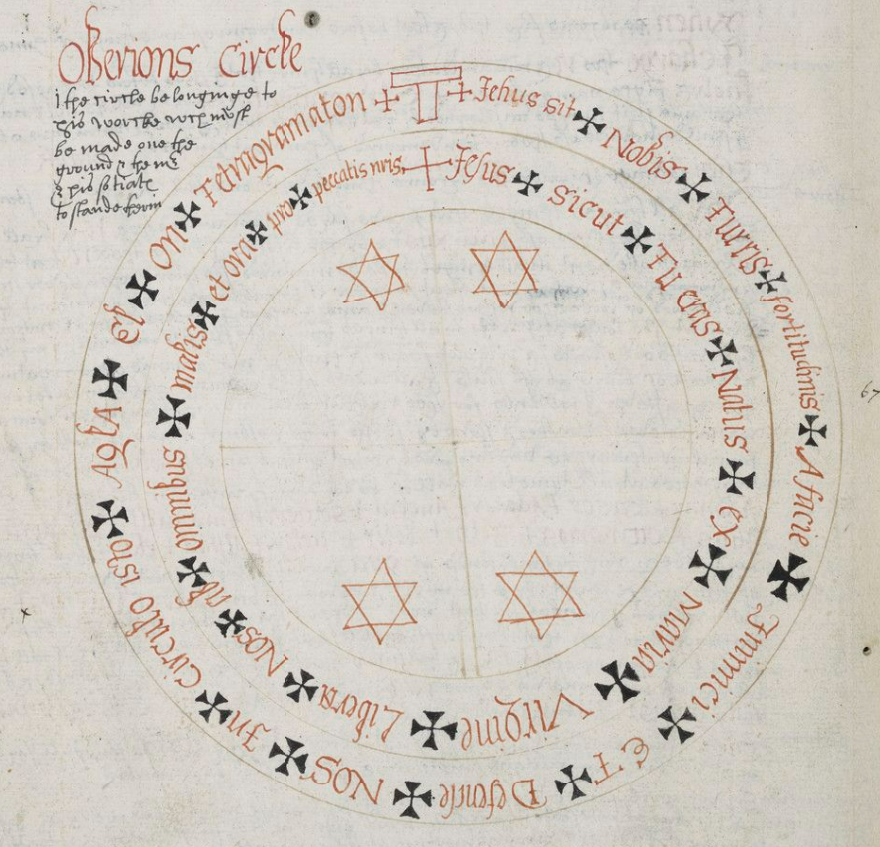 Oberions Circle
the circle belonginge to
this worcke wch must
be made one the
ground
to stande
+ Jehus sit ✠ Nobis ✠ Turris ✠ fortitudinis ✠ Afacie ✠ Inimici ✠ ET ✠ Defende ✠ NOS ✠ In ✠ circulo isto ✠ AglA ✠ El ✠ ON ✠ Tetragramaton +
+ Jesus ✠ sicut ✠ TU eras ✠ Natus ✠ EX ✠ Maria ✠ Virgine ✠ Libera ✠ NOS ✠ ab ✠ omnibus ✠ malis ✠ et ora ✠ pro ✠ peccatis nris
67